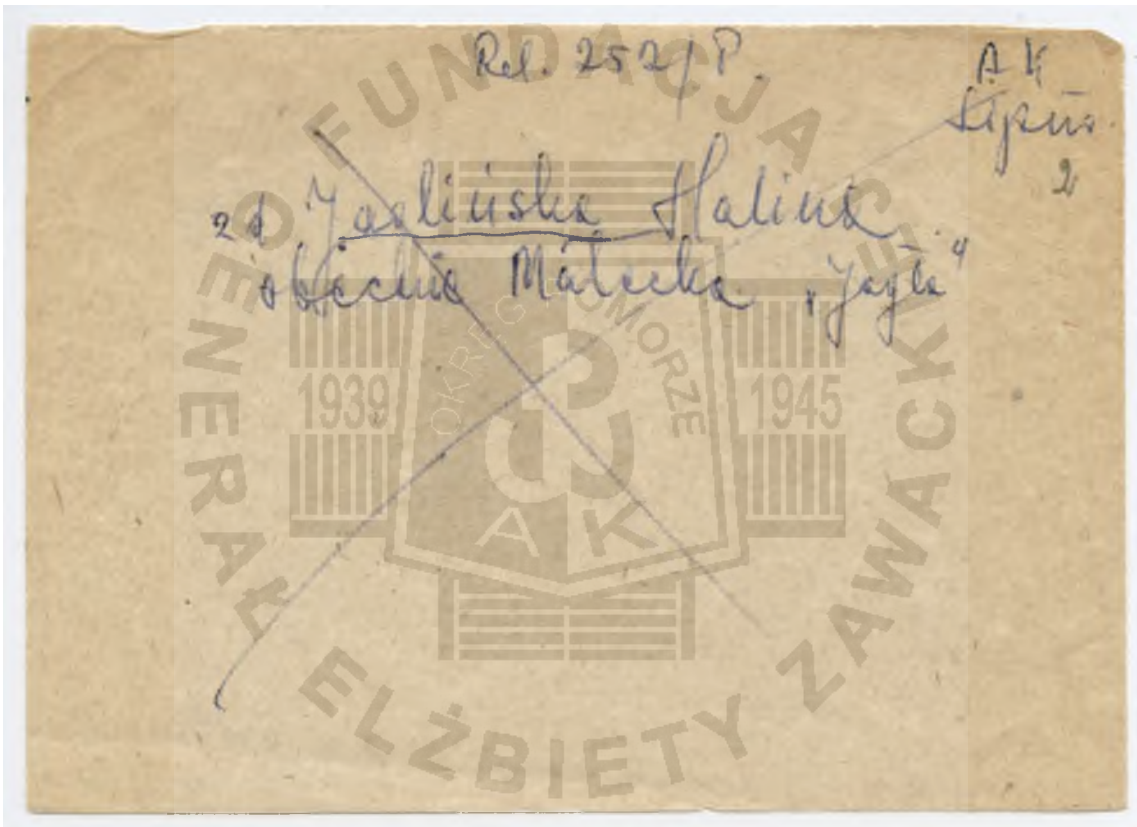 Rel. 252/P.
AK
Lipno
2
zd. Jaslińska Halina
obecnie Małecka "Jagła"
FUNDACJA
GENERAŁ ELŻBIETY ZAWACKIEJ
OKRĘG POMORZE
1939
1945
AK